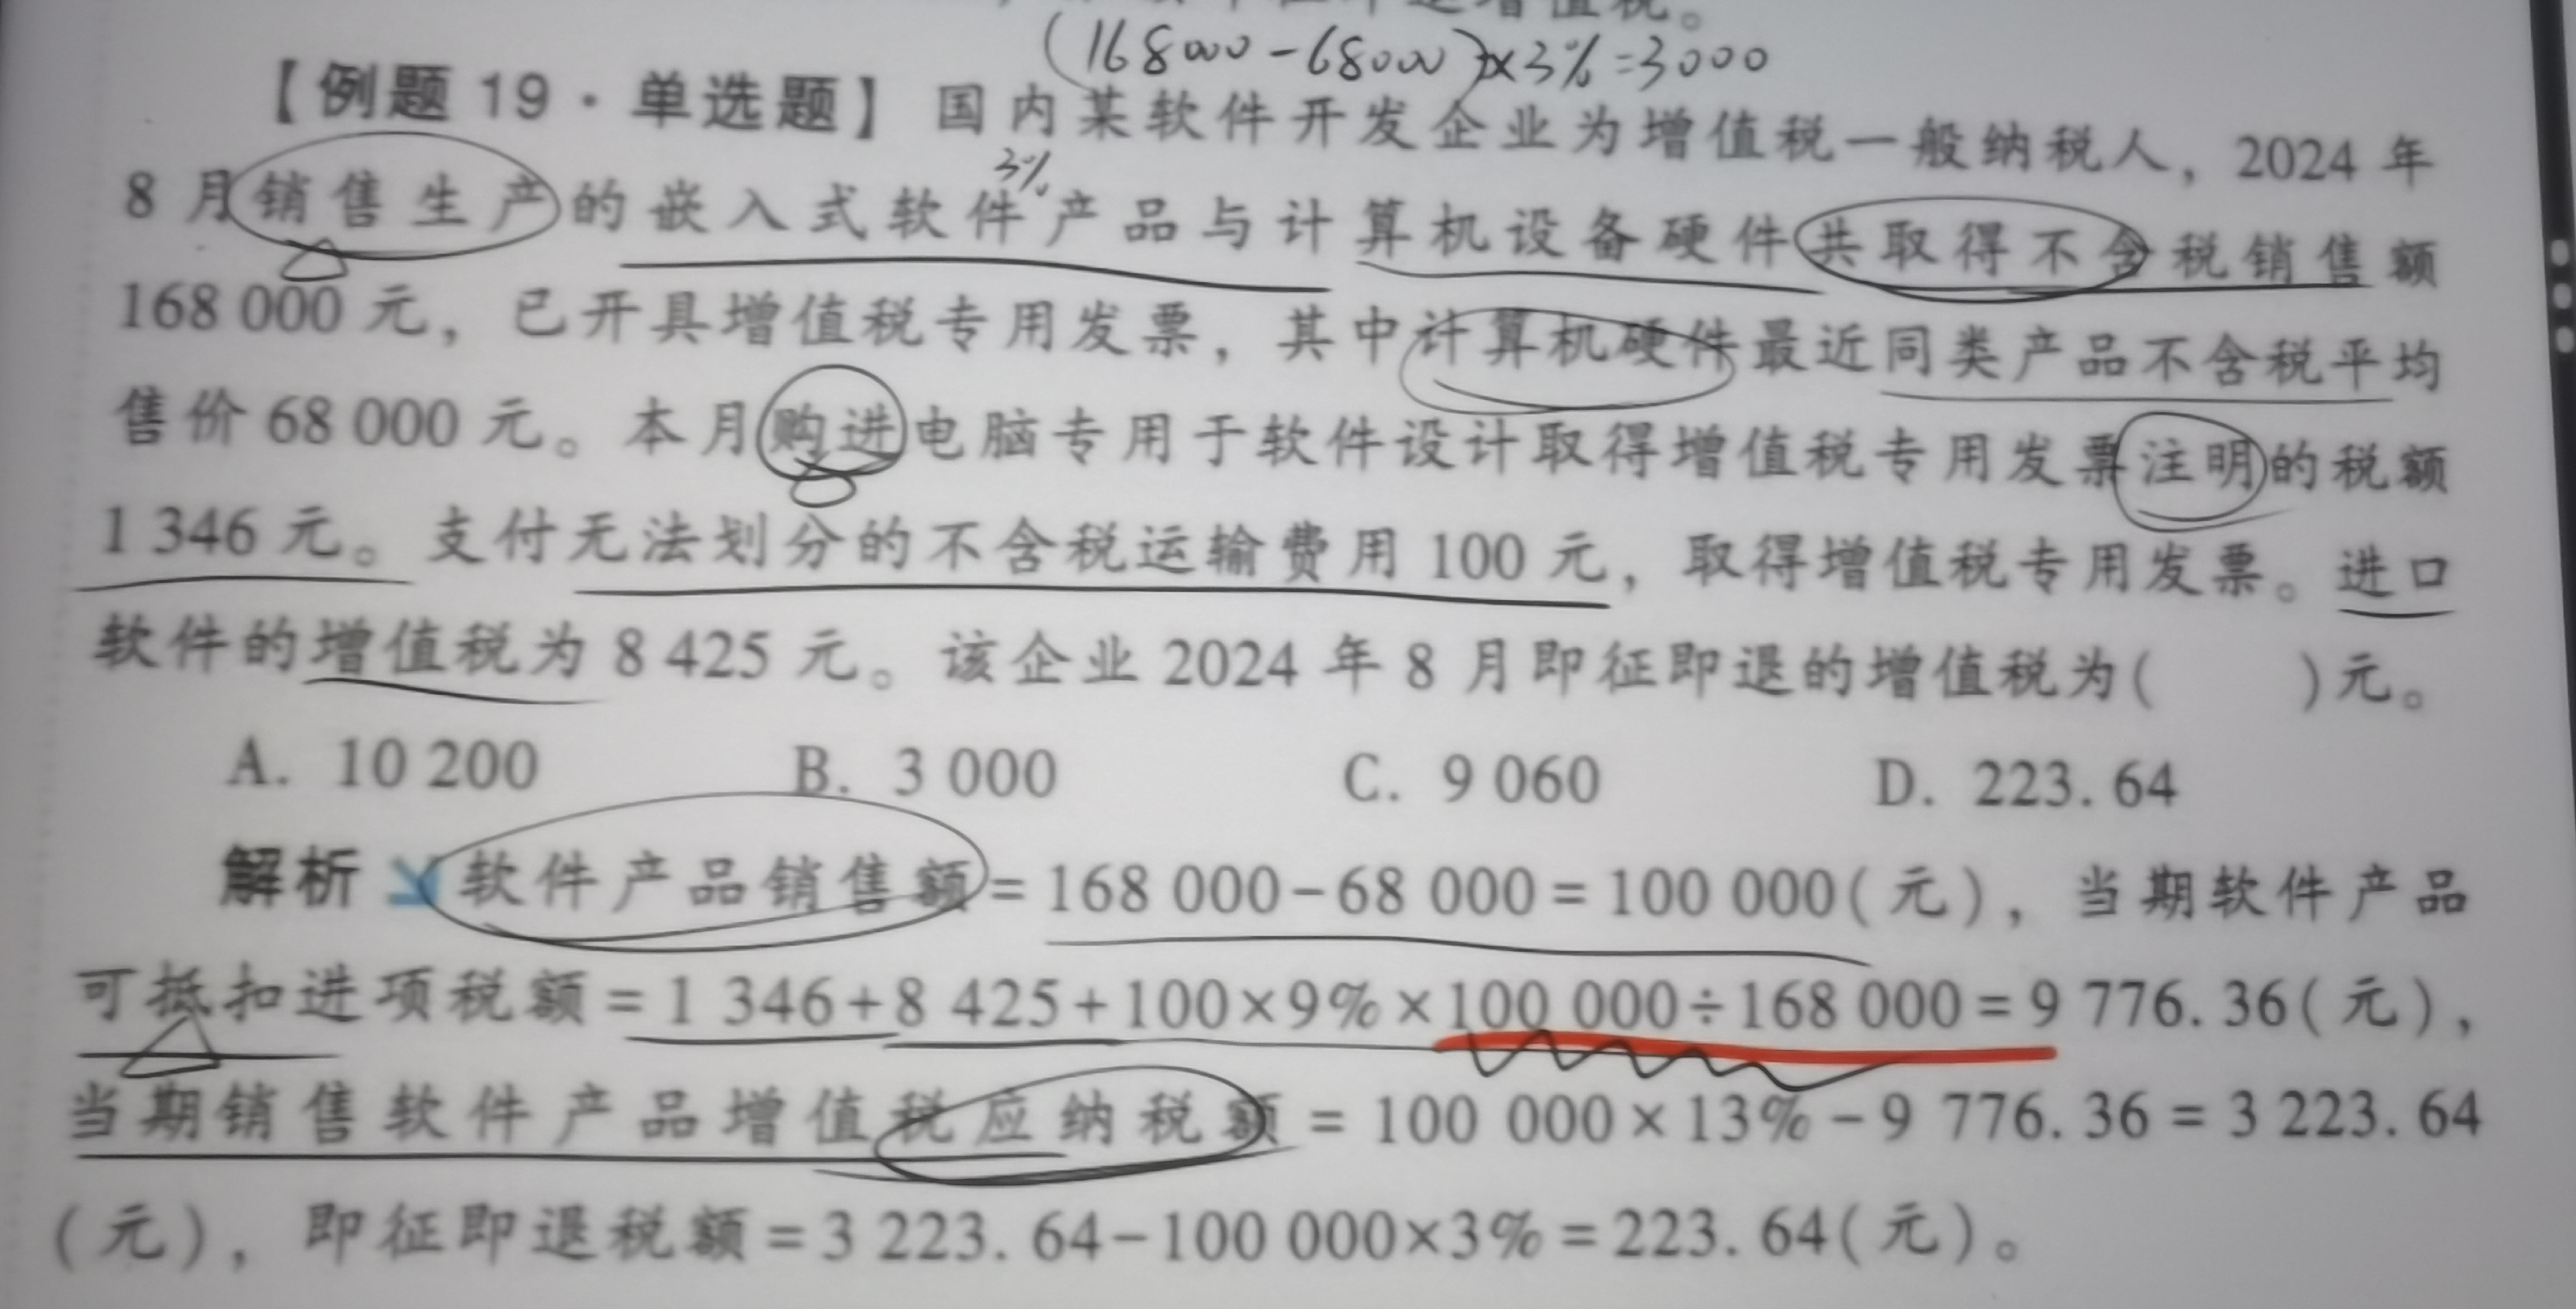 增值税。
(168000-68000)×3%=3000
【例题 19·单选题】 国内某软件开发企业为增值税一般纳税人，2024 年
3%
8 月销售生产的嵌入式软件产品与计算机设备硬件共取得不含税销售额
168 000 元，已开具增值税专用发票，其中计算机硬件最近同类产品不含税平均
售价 68 000 元。本月购进电脑专用于软件设计取得增值税专用发票注明的税额
1 346 元。支付无法划分的不含税运输费用 100 元，取得增值税专用发票。进口
软件的增值税为 8 425 元。该企业 2024 年 8 月即征即退的增值税为( )元。
A. 10 200 B. 3 000 C. 9 060 D. 223. 64
解析 软件产品销售额=168 000-68 000=100 000(元)，当期软件产品
可抵扣进项税额=1 346+8 425+100×9%×100 000÷168 000=9 776. 36(元)，
当期销售软件产品增值税应纳税额=100 000×13%-9 776. 36=3 223. 64
(元)，即征即退税额=3 223. 64-100 000×3%=223. 64(元)。